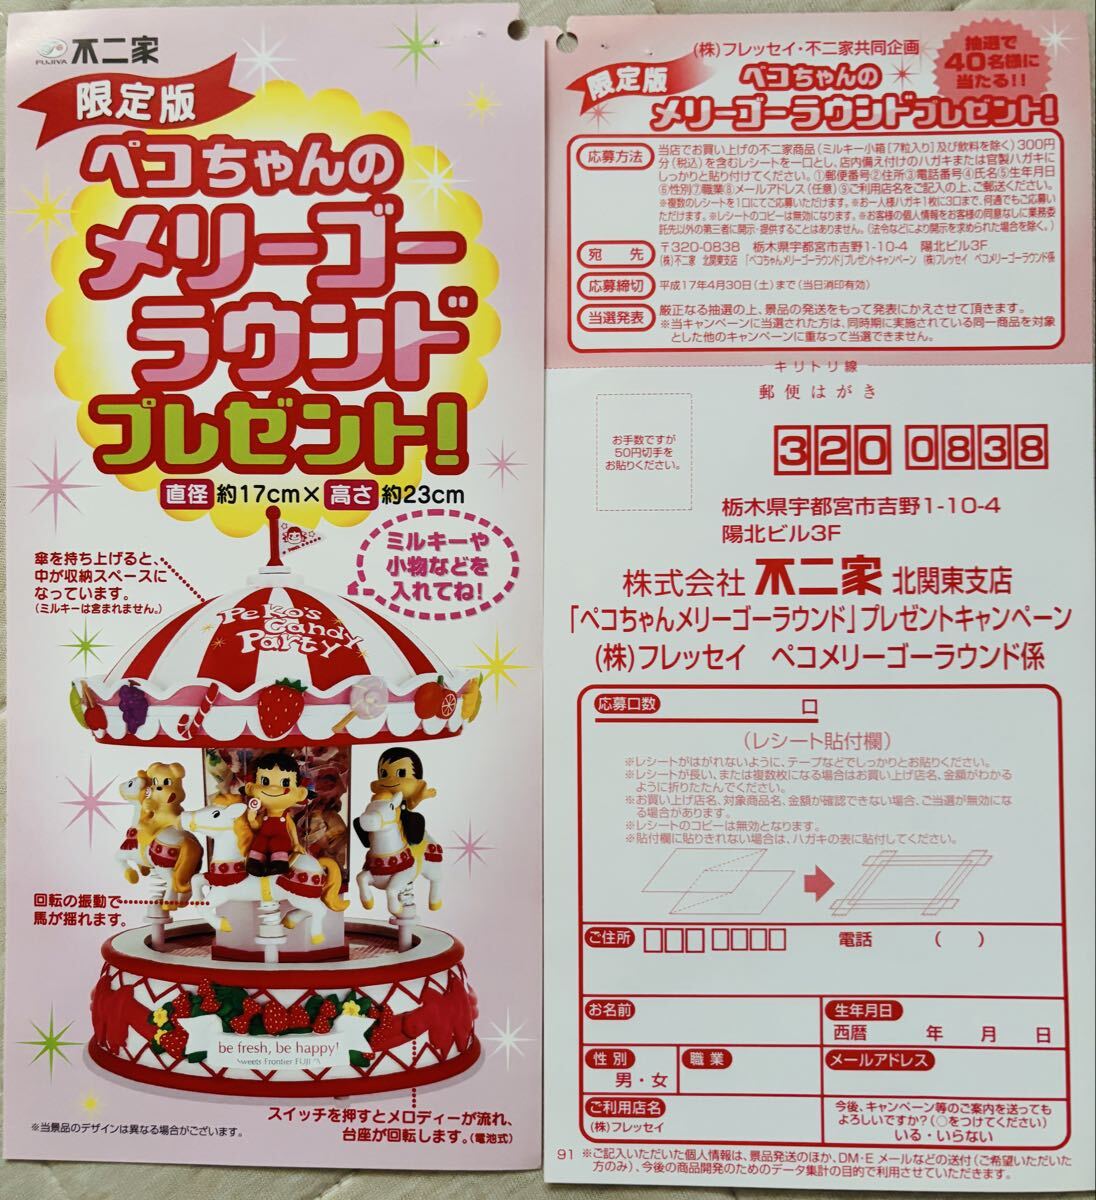 FUJIYA 不二家
限定版
ペコちゃんの
メリーゴー
ラウンド
プレゼント!
直径 約17cm× 高さ 約23cm
傘を持ち上げると、
中が収納スペースに
なっています。
(ミルキーは含まれません。)
ミルキーや
小物などを
入れてね!
Peko's
Candy
Party
回転の振動で
馬が揺れます。
be fresh, be happy!
Sweets Frontier FUJIYA
スイッチを押すとメロディーが流れ、
台座が回転します。(電池式)
※当景品のデザインは異なる場合がございます。
(株)フレッセイ・不二家共同企画
抽選で
40名様に
当たる!!
限定版
ペコちゃんの
メリーゴーラウンドプレゼント!
応募方法
当店でお買い上げの不二家商品(ミルキー小箱[7粒入り]及び飲料を除く)300円
分(税込)を含むレシートを一口とし、店内備え付けのハガキまたは官製ハガキに
しっかりと貼り付けてください。①郵便番号②住所③電話番号④氏名⑤生年月日
⑥性別⑦職業⑧メールアドレス(任意)⑨ご利用店名をご記入の上、ご郵送ください。
※複数のレシートを1口にてご応募いただけます。※お一人様ハガキ1枚に3口まで、何通でもご応募い
ただけます。※レシートのコピーは無効になります。※お客様の個人情報をお客様の同意なしに業務委
託先以外の第三者に開示・提供することはありません。(法令などにより開示を求められた場合を除く。)
宛先
〒320-0838 栃木県宇都宮市吉野1-10-4 陽北ビル3F
(株)不二家 北関東支店 「ペコちゃんメリーゴーラウンド」プレゼントキャンペーン (株)フレッセイ ペコメリーゴーラウンド係
応募締切
平成17年4月30日(土)まで(当日消印有効)
当選発表
厳正なる抽選の上、景品の発送をもって発表にかえさせて頂きます。
※当キャンペーンに当選された方は、同時期に実施されている同一商品を対象
とした他のキャンペーンに重なって当選できません。
キリトリ線
郵便はがき
お手数ですが
50円切手を
お貼りください。
320 0838
栃木県宇都宮市吉野1-10-4
陽北ビル3F
株式会社 不二家 北関東支店
「ペコちゃんメリーゴーラウンド」プレゼントキャンペーン
(株)フレッセイ ペコメリーゴーラウンド係
応募口数 口
(レシート貼付欄)
※レシートがはがれないように、テープなどでしっかりとお貼りください。
※レシートが長い、または複数枚になる場合はお買い上げ店名、金額がわかる
ように折りたたんでください。
※お買い上げ店名、対象商品名、金額が確認できない場合、ご当選が無効にな
る場合があります。
※レシートのコピーは無効となります。
※貼付欄に貼りきれない場合は、ハガキの表に貼付してください。
ご住所 電話 ( )
お名前
生年月日
西暦 年 月 日
性別
男・女
職業
メールアドレス
ご利用店名
(株)フレッセイ
今後、キャンペーン等のご案内を送っても
よろしいですか?(○をつけてください)
いる・いらない
91 ※ご記入いただいた個人情報は、景品発送のほか、DM・Eメールなどの送付(ご希望いただいた
方のみ)、今後の商品開発のためのデータ集計の目的で利用させていただきます。